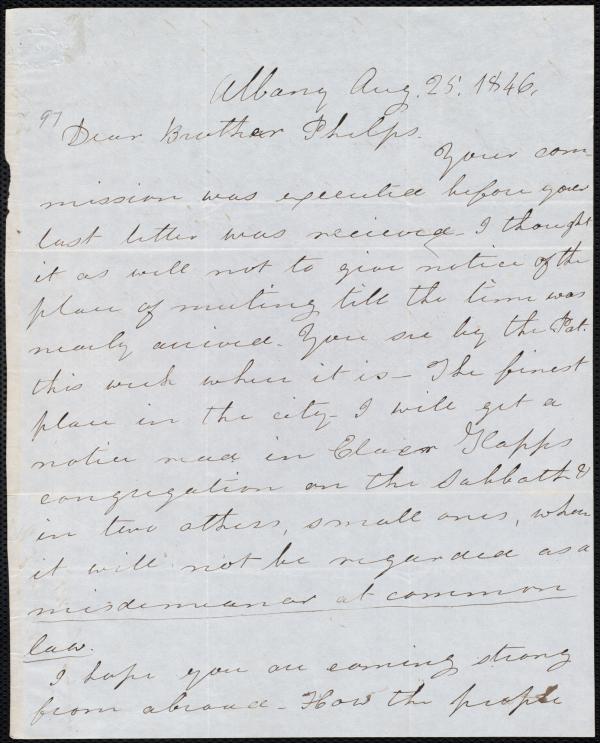 Albany Aug. 25. 1846.
97
Dear Brother Phelps.
Your com-
mission was executed before your
last letter was recieved. I thought
it as well not to give notice of the
place of meeting till the time was
nearly arrived. You see by the Pat.
this week where it is - The finest
place in the city - I will get a
notice read in Elder Knapps
congregation on the Sabbath &
in two others, small ones, where
it will not be regarded as a
misdemeanor at common
law.
I hope you are coming strong
from abroad - How the people